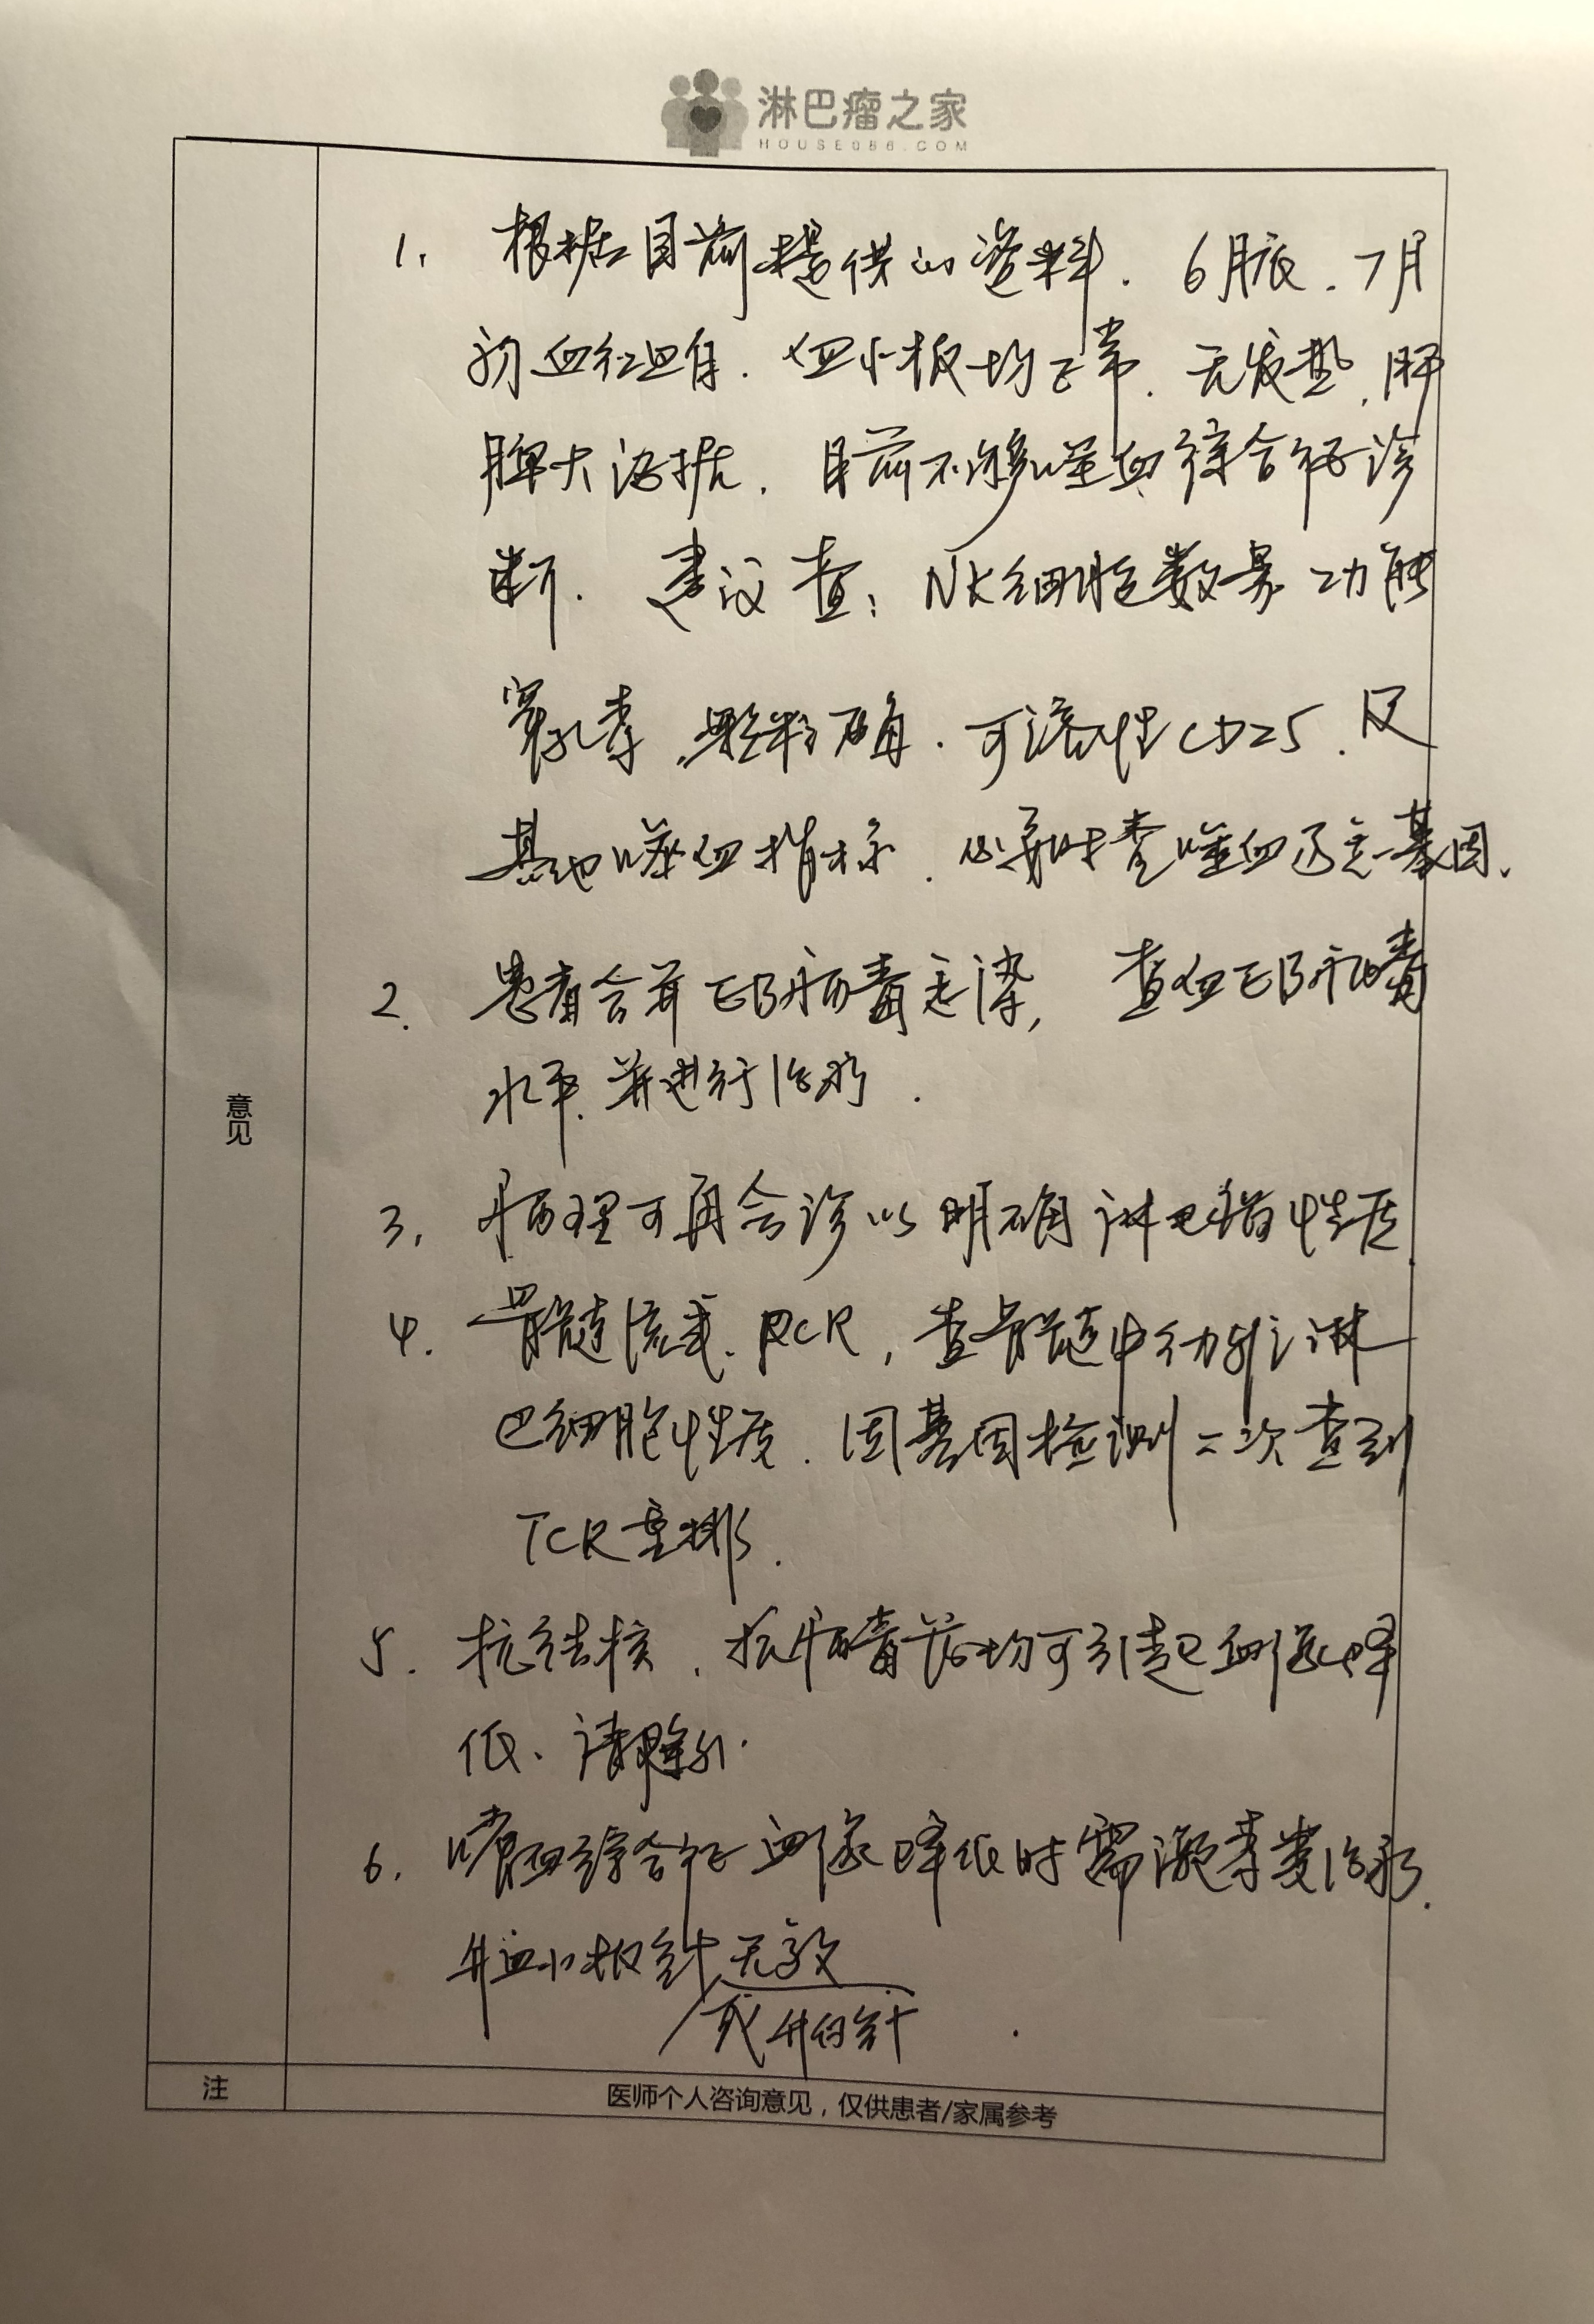 淋巴瘤之家
HOUSE086.COM
1. 根据目前提供的资料. 6月底. 7月
初血红蛋白. 血小板均正常. 无发热, 肝
脾大证据. 目前不够噬血综合征诊
断. 建议查: NK细胞数量 功能
穿孔素. 颗粒酶. 可溶性CD25. 及
其他噬血指标. 必要时查噬血遗传基因.
2. 患者合并EB病毒感染, 查血EB病毒
水平. 并进行治疗.
3. 病理可再会诊以明确淋巴瘤性质
4. 骨髓流式. PCR, 查骨髓中幼稚淋
巴细胞性质. 因基因检测二次查到
TCR重排.
5. 抗结核. 抗病毒药均可引起血像降
低、请除外.
6. 噬血综合征血像降低时需激素类治疗.
升血小板针无效
或升白针.
意见
注
医师个人咨询意见，仅供患者/家属参考